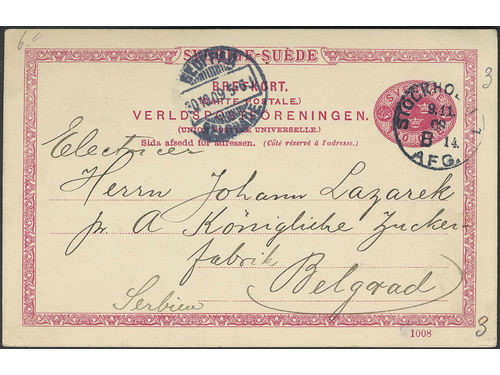 6
SVERIGE-SUÈDE
3
BREFKORT.
(CARTE POSTALE.)
VERLDSPOSTFÖRENINGEN.
(UNION POSTALE UNIVERSELLE.)
Sida afsedd för adressen. (Côté réservé à l'adresse.)
STOCKHO
9.11
8
14
AFG.
Herrn Johann Lazarek
pr. A Königliche Zucker-
fabrik
Belgrad
Serbien
1008
3